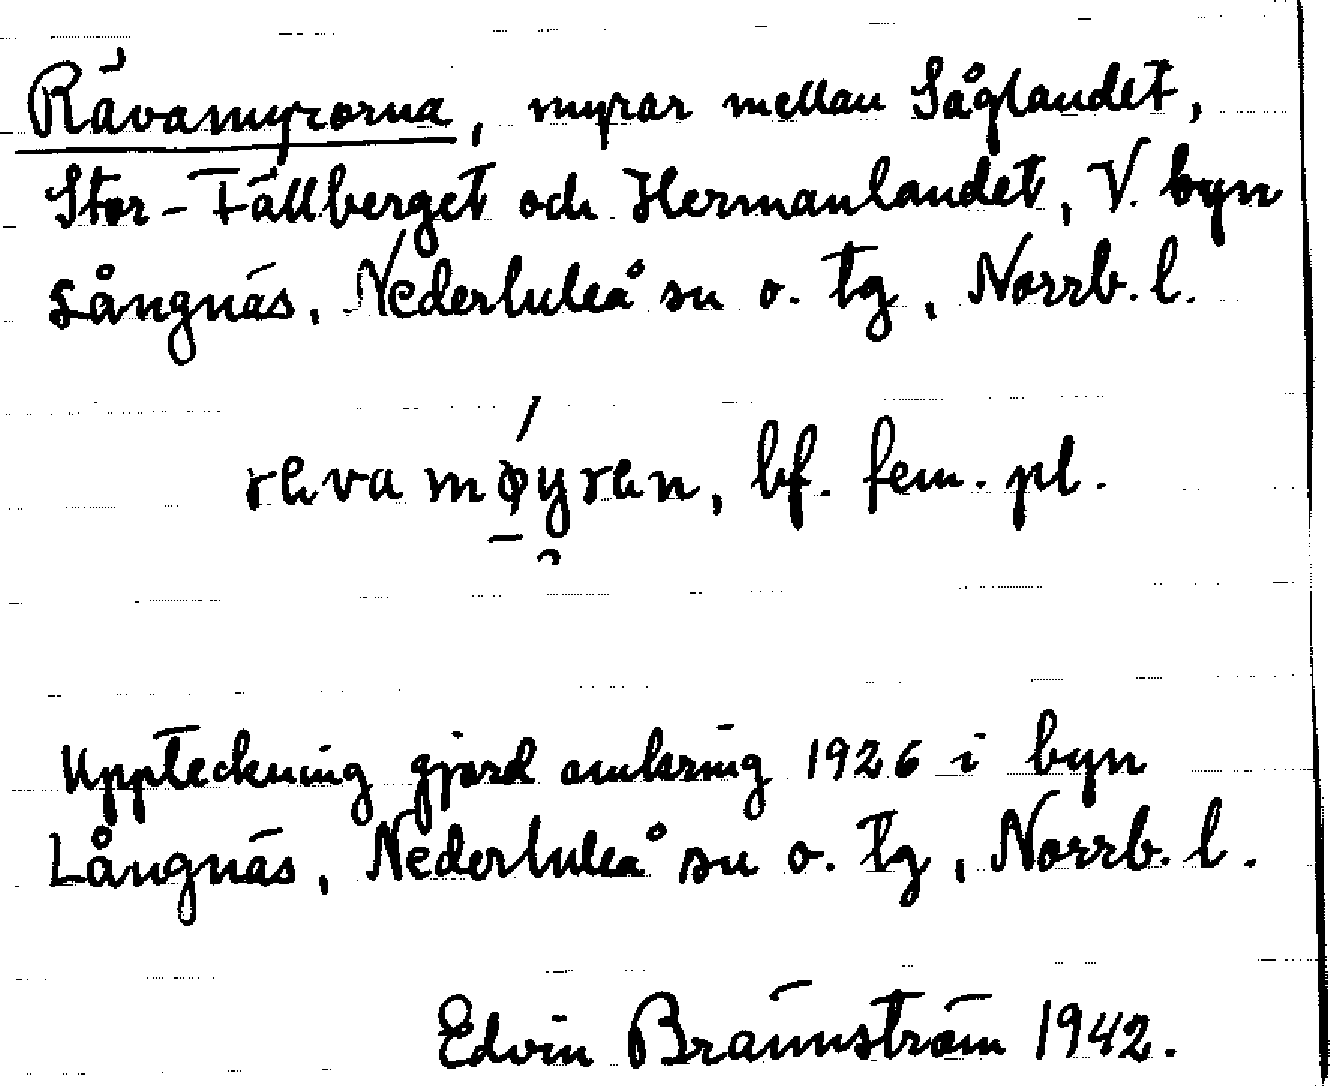 Rävamyrorna, myrar mellan Såglandet,
Stor-Fällberget och Hermanlandet, V. byn
Långnäs, Nederluleå sn o. tg, Norrb. l.
rävamøyrän, bf. fem. pl.
Uppteckning gjord omkring 1926 i byn
Långnäs, Nederluleå sn o. tg, Norrb. l.
Edvin Brännström 1942.